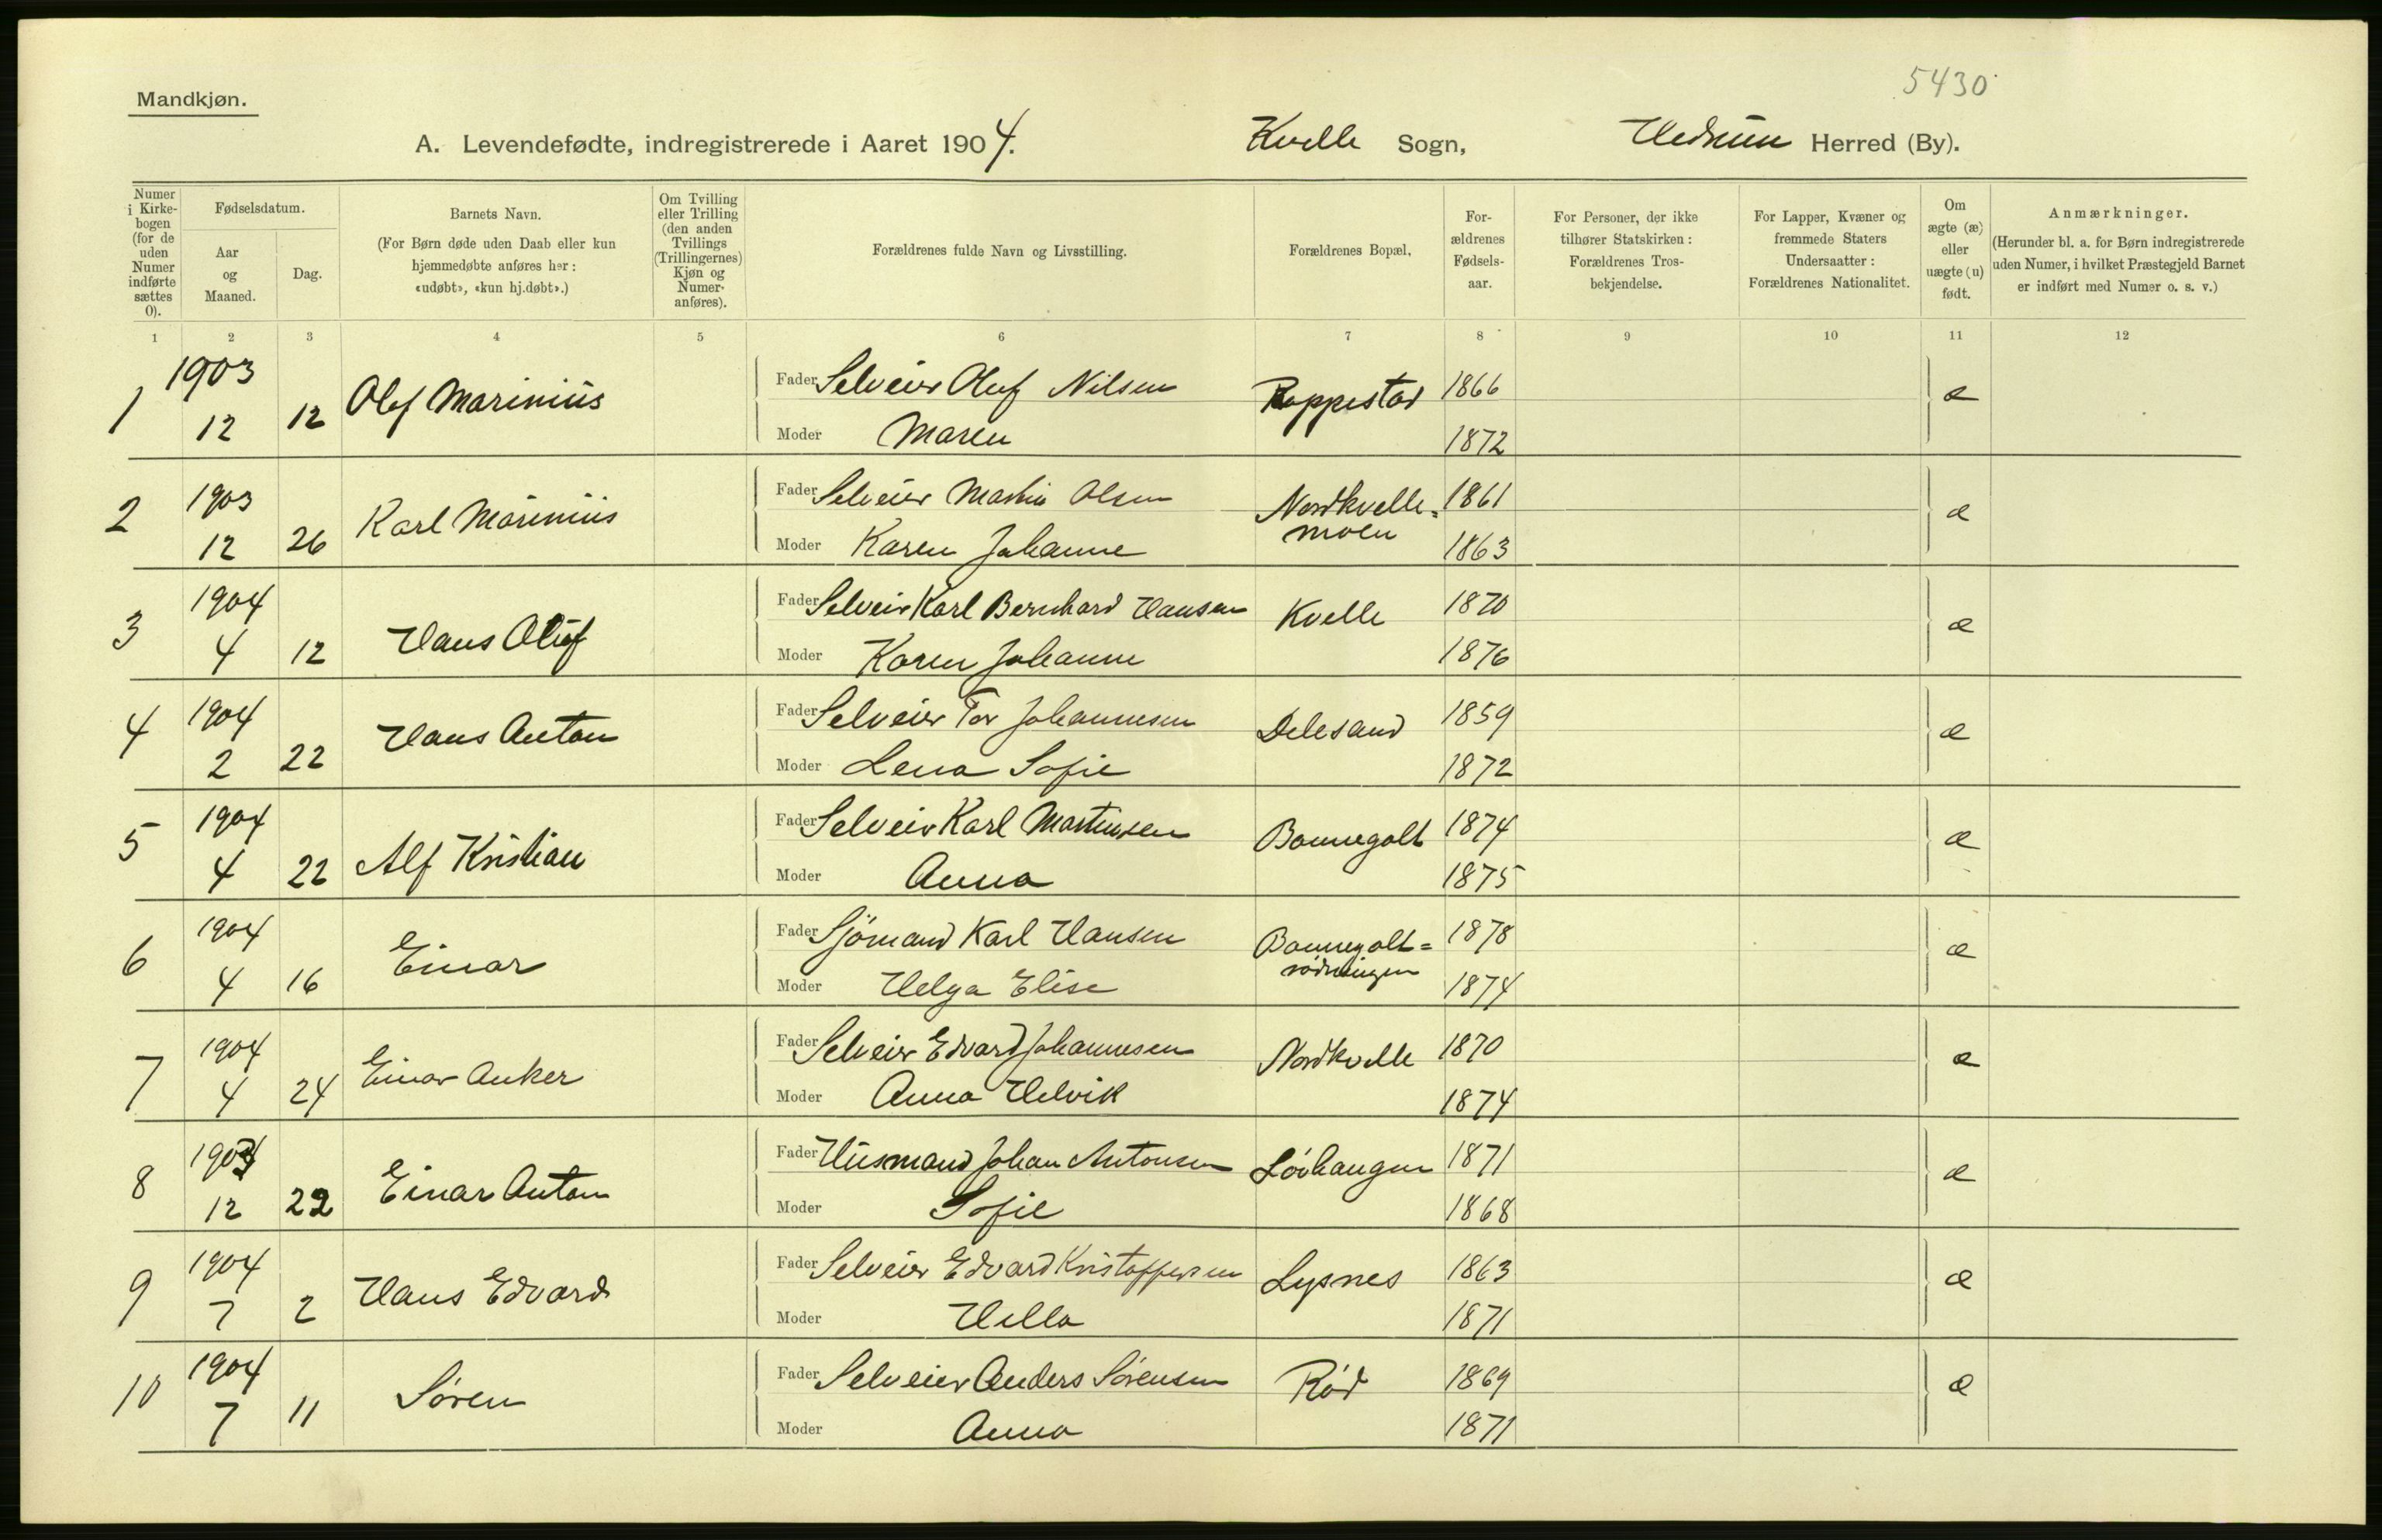 5430
Mandkjøn.
A. Levendefødte, indregistrerede i Aaret 1904. Kvelle Sogn, Hedrum Herred (By).
Numer i Kirkebogen (for de uden Numer indførte sættes 0).
Fødselsdatum.
Aar og Maaned.
Dag.
Barnets Navn.
(For Børn døde uden Daab eller kun hjemmedøbte anføres her: «udøbt», «kun hj.døbt».)
Om Tvilling eller Trilling (den anden Tvillings (Trillingernes) Kjøn og Numer anføres).
Forældrenes fulde Navn og Livsstilling.
Forældrenes Bopæl.
Forældrenes Fødselsaar.
For Personer, der ikke tilhører Statskirken: Forældrenes Trosbekjendelse.
For Lapper, Kvæner og fremmede Staters Undersaatter: Forældrenes Nationalitet.
Om ægte (æ) eller uægte (u) født.
Anmærkninger.
(Herunder bl. a. for Børn indregistrerede uden Numer, i hvilket Præstegjeld Barnet er indført med Numer o. s. v.)
1 2 3 4 5 6 7 8 9 10 11 12
1 1903 12 12 Olaf Marinius Fader Selveier Oluf Nilsen Rappestad 1866 æ
Moder Maren 1872
2 1903 12 26 Karl Marinius Fader Selveier Martin Olsen Nordkvelle=moen 1861 æ
Moder Karen Johanne 1863
3 1904 4 12 Hans Oluf Fader Selveier Karl Bernhard Hansen Kvelle 1870 æ
Moder Karen Johanne 1876
4 1904 2 22 Hans Anton Fader Selveier Tor Johannesen Delesand 1859 æ
Moder Lena Sofie 1872
5 1904 4 22 Alf Kristian Fader Selveier Karl Martinsen Bonnegolt 1874 æ
Moder Anna 1875
6 1904 4 16 Einar Fader Sjømand Karl Hansen Bonnegolt=rødningen 1878 æ
Moder Helga Elise 1874
7 1904 4 24 Einar Anker Fader Selveier Edvard Johannesen Nordkvelle 1870 æ
Moder Anna Helvik 1874
8 1903 12 22 Einar Anton Fader Husmand Johan Antonsen Løvhaugen 1871 æ
Moder Sofie 1868
9 1904 7 2 Hans Edvard Fader Selveier Edvard Kristoffersen Lysnes 1863 æ
Moder Hella 1871
10 1904 7 11 Søren Fader Selveier Anders Sørensen Rød 1869 æ
Moder Anna 1871